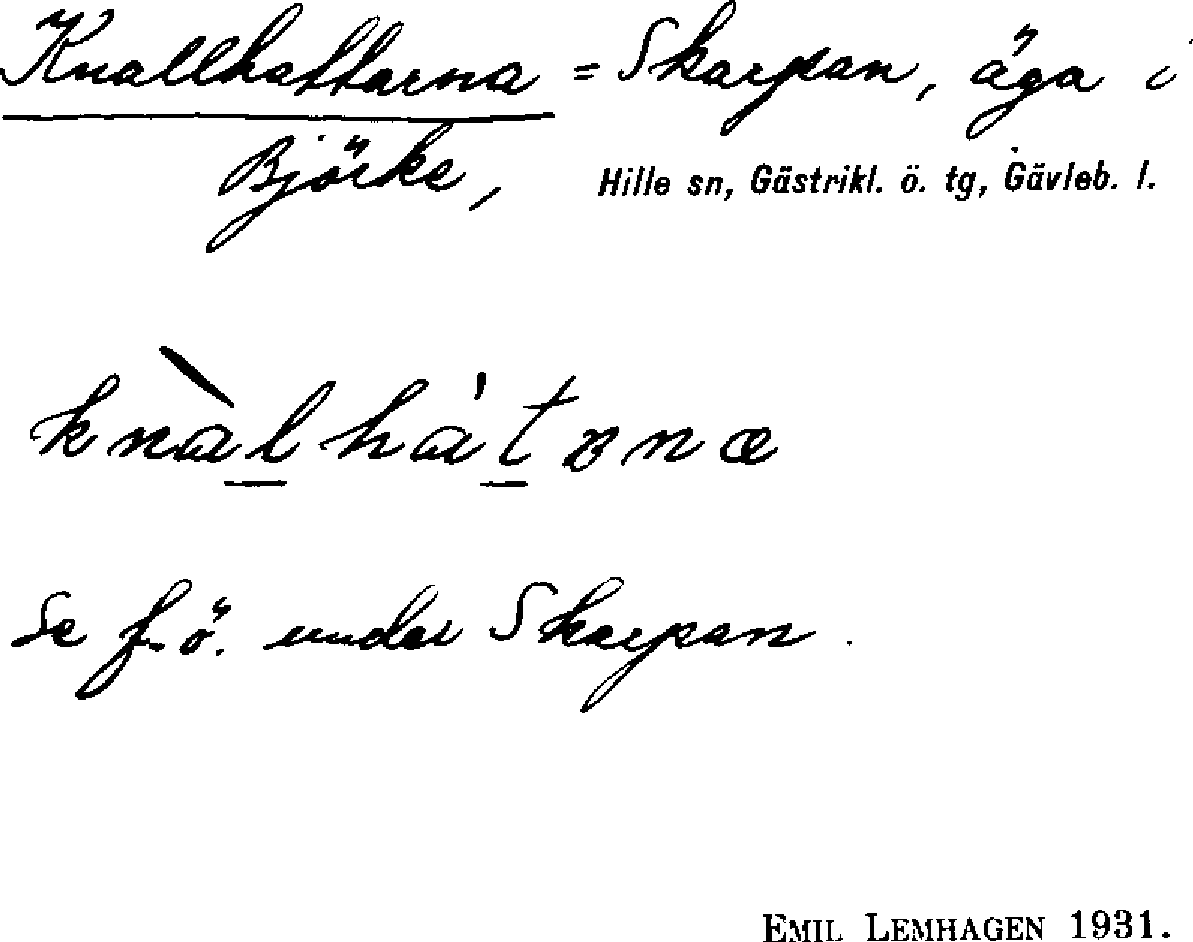 Knallhattarna = Skarpan, äga i
Björke, Hille sn, Gästrikl. ö. tg, Gävleb. l.
knàlhátɒnæ
Se f. ö. under Skarpan.
EMIL LEMHAGEN 1931.